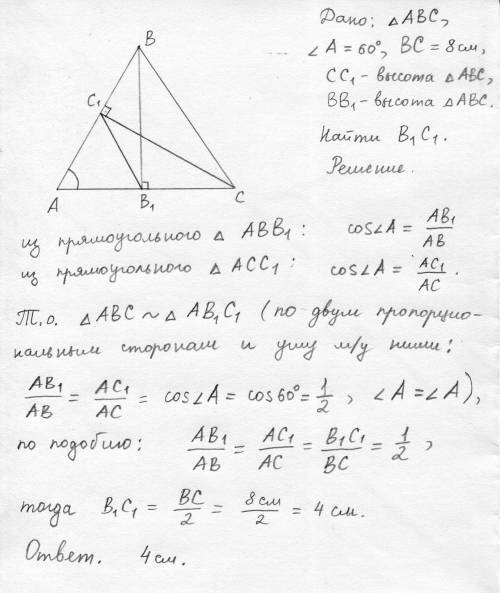 Дано: △ABC,
∠A = 60°, BC = 8 см,
CC₁ - высота △ABC,
BB₁ - высота △ABC.
Найти B₁C₁.
Решение.
B
C₁
A
B₁
C
из прямоугольного △ ABB₁: cos∠A = AB₁/AB
из прямоугольного △ ACC₁: cos∠A = AC₁/AC.
Т.о. △ABC ~ △AB₁C₁ (по двум пропорцио-
нальным сторонам и углу м/у ними:
AB₁/AB = AC₁/AC = cos∠A = cos60° = 1/2, ∠A = ∠A),
по подобию: AB₁/AB = AC₁/AC = B₁C₁/BC = 1/2,
тогда B₁C₁ = BC/2 = 8см/2 = 4 см.
Ответ. 4 см.